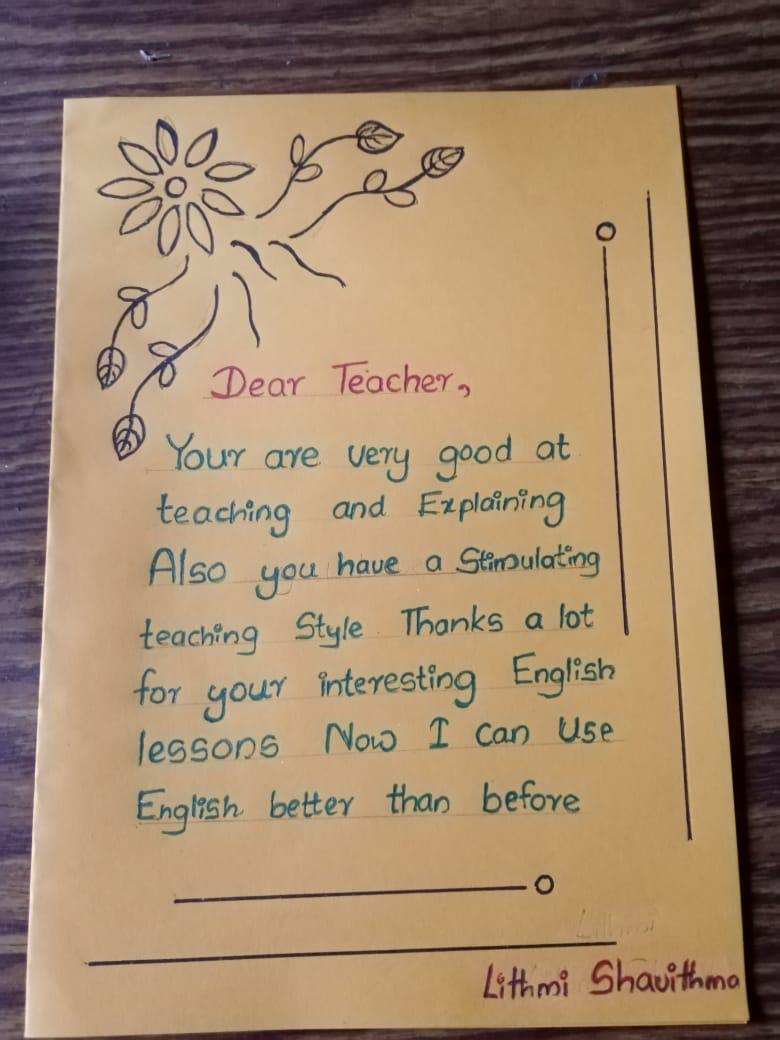 Dear Teacher,
Your are very good at
teaching and Explaining
Also you have a Stimulating
teaching Style Thanks a lot
for your interesting English
lessons Now I can Use
English better than before
Lithmi
Lithmi Shavithma